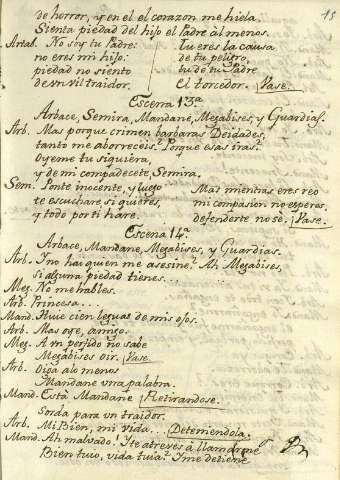 15
de horror, y en el el corazon me hiela.
Sienta piedad del hijo el Padre àl menos.
Artab. No soy tu Padre: Tu eres la causa
no eres mi hijo: de tu peligro,
piedad no siento tu de tu Padre
de un vil traidor. el torcedor. Vase.
Escena 13.a
Arbace, Semira, Mandane, Megabises, y Guardias.
Arb. Mas porque crimen barbaras Deidades,
tanto me aborreceis? Porque esas iras?
Oyeme tu siquiera,
y de mi compadecete, Semira.
Sem. Ponte inocente, y luego Mas mientras eres reo
te escucharè si quieres, mi compasion no esperes,
y todo por ti harè. defenderte no sè. Vase.
Escena 14.a
Arbace, Mandane, Megabises, y Guardias.
Arb. Y no hai quien me asesine? Ah Megabises,
si alguna piedad tienes...
Meg. No me hables.
Arb. Princesa...
Mand. Huie cien leguas de mis ojos.
Arb. Mas oye, amigo.
Meg. A un perfido no sabe
Megabises oir. Vase.
Arb. Oiga alo menos
Mandane una palabra.
Mand. Està Mandane Retirandose.
Sorda para un traidor.
Arb. Mi Bien, mi vida... Deteniendola.
Mand. Ah malvado! Y te atreves à llamarme
Bien tuio, vida tuia? Y me detiene